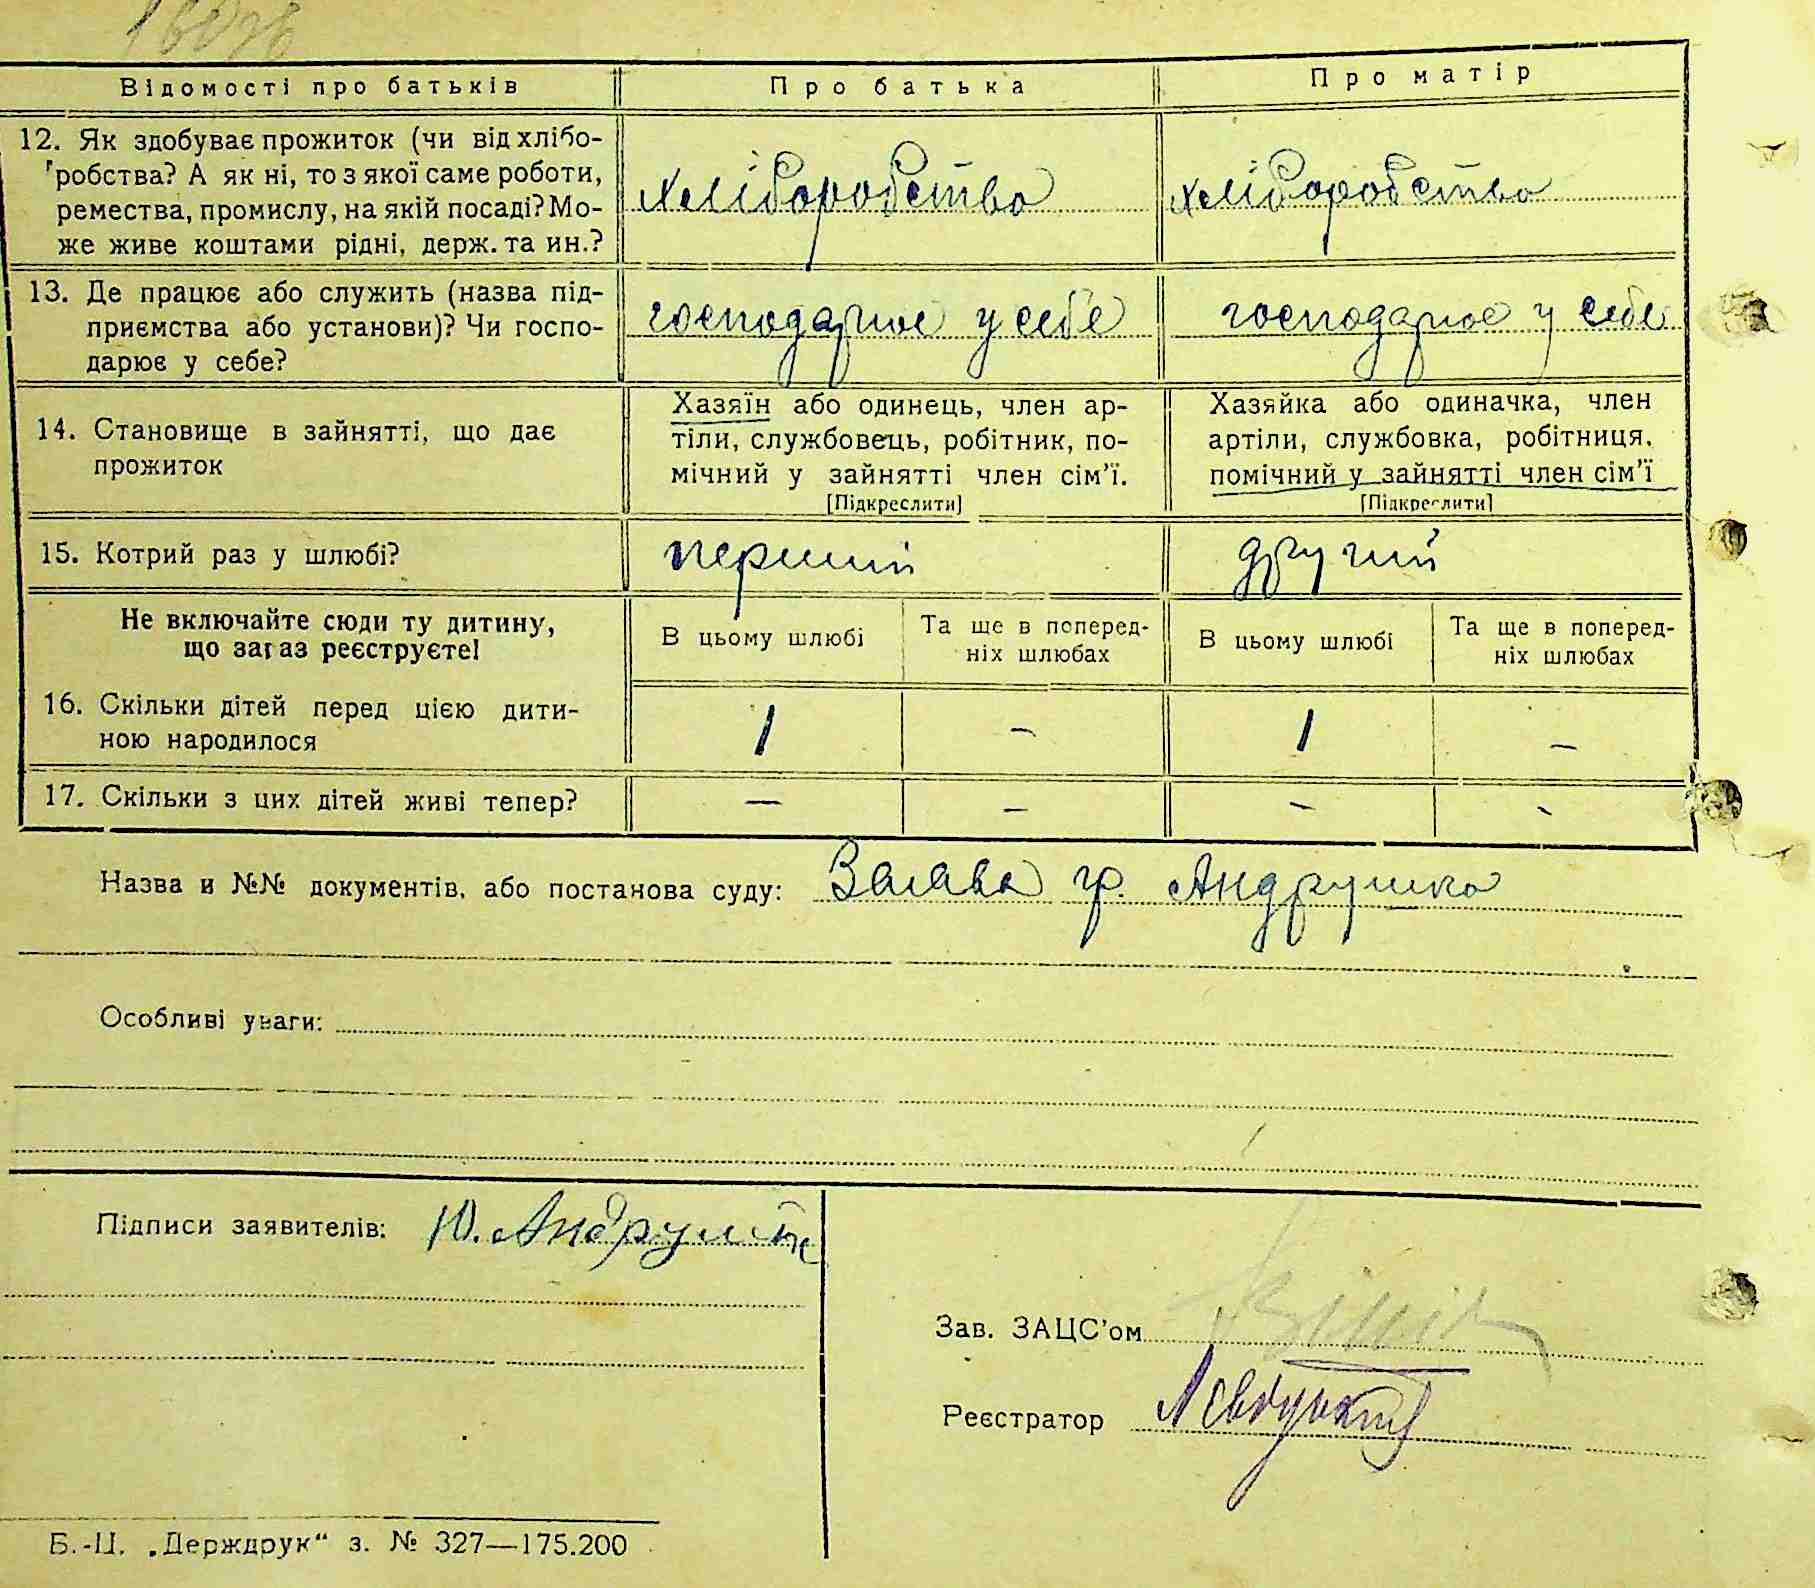 Відомості про батьків Про батька Про матір
12. Як здобуває прожиток (чи від хлібо-
робства? А як ні, то з якої саме роботи,
ремества, промислу, на якій посаді? Мо-
же живе коштами рідні, держ. та ин.?
хліборобство хліборобство
13. Де працює або служить (назва під-
приємства або установи)? Чи госпо-
дарює у себе?
господарює у себе господарює у себе
14. Становище в зайнятті, що дає
прожиток
Хазяїн або одинець, член ар-
тіли, службовець, робітник, по-
мічний у зайнятті член сім'ї.
[Підкреслити]
Хазяйка або одиначка, член
артіли, службовка, робітниця,
помічний у зайнятті член сім'ї
[Підкреслити]
15. Котрий раз у шлюбі? перший другий
Не включайте сюди ту дитину,
що зараз реєструєте!
В цьому шлюбі
Та ще в поперед-
ніх шлюбах
В цьому шлюбі
Та ще в поперед-
ніх шлюбах
16. Скільки дітей перед цією дити-
ною народилося
1 – 1 –
17. Скільки з цих дітей живі тепер? – – – –
Назва и №№ документів, або постанова суду: Заява гр. Андрушка
Особливі уваги:
Підписи заявителів: Ю. Андру
Зав. ЗАЦС'ом
Реєстратор
Б.-Ц. „Держдрук“ з. № 327—175.200